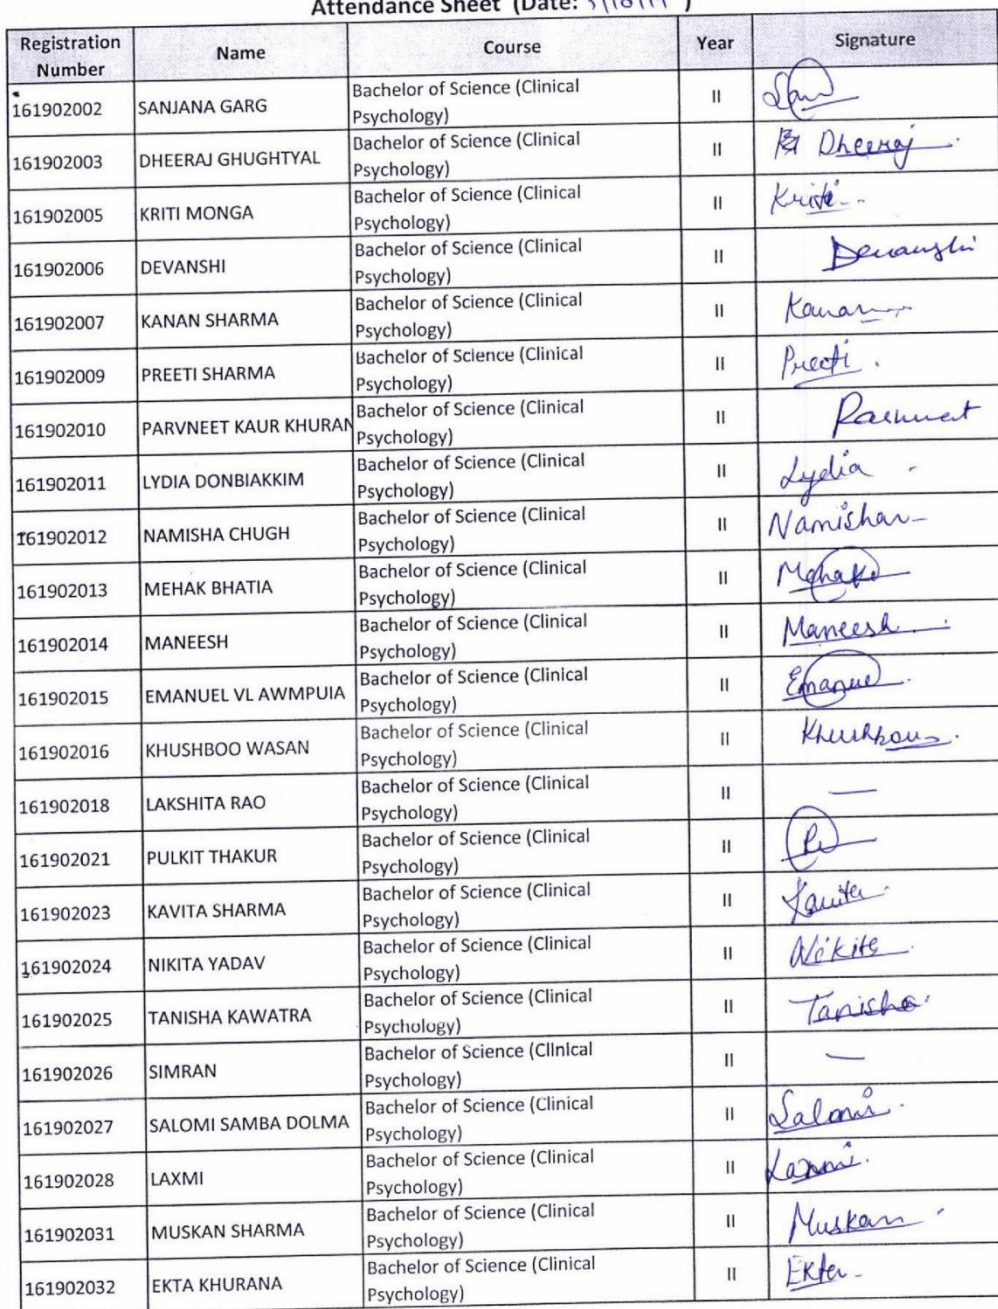 Attendance Sheet (Date: )
Registration Number Name Course Year Signature
161902002 SANJANA GARG Bachelor of Science (Clinical Psychology) II
161902003 DHEERAJ GHUGHTYAL Bachelor of Science (Clinical Psychology) II Dheeraj
161902005 KRITI MONGA Bachelor of Science (Clinical Psychology) II Kriti
161902006 DEVANSHI Bachelor of Science (Clinical Psychology) II Devanshi
161902007 KANAN SHARMA Bachelor of Science (Clinical Psychology) II Kanan
161902009 PREETI SHARMA Bachelor of Science (Clinical Psychology) II Preeti
161902010 PARVNEET KAUR KHURAN Bachelor of Science (Clinical Psychology) II
161902011 LYDIA DONBIAKKIM Bachelor of Science (Clinical Psychology) II Lydia
161902012 NAMISHA CHUGH Bachelor of Science (Clinical Psychology) II Namisha
161902013 MEHAK BHATIA Bachelor of Science (Clinical Psychology) II Mehak
161902014 MANEESH Bachelor of Science (Clinical Psychology) II Maneesh
161902015 EMANUEL VL AWMPUIA Bachelor of Science (Clinical Psychology) II Emanuel
161902016 KHUSHBOO WASAN Bachelor of Science (Clinical Psychology) II
161902018 LAKSHITA RAO Bachelor of Science (Clinical Psychology) II —
161902021 PULKIT THAKUR Bachelor of Science (Clinical Psychology) II
161902023 KAVITA SHARMA Bachelor of Science (Clinical Psychology) II Kavita
161902024 NIKITA YADAV Bachelor of Science (Clinical Psychology) II Nikita
161902025 TANISHA KAWATRA Bachelor of Science (Clinical Psychology) II Tanisha
161902026 SIMRAN Bachelor of Science (Clinical Psychology) II —
161902027 SALOMI SAMBA DOLMA Bachelor of Science (Clinical Psychology) II Salomi
161902028 LAXMI Bachelor of Science (Clinical Psychology) II Laxmi
161902031 MUSKAN SHARMA Bachelor of Science (Clinical Psychology) II Muskan
161902032 EKTA KHURANA Bachelor of Science (Clinical Psychology) II Ekta